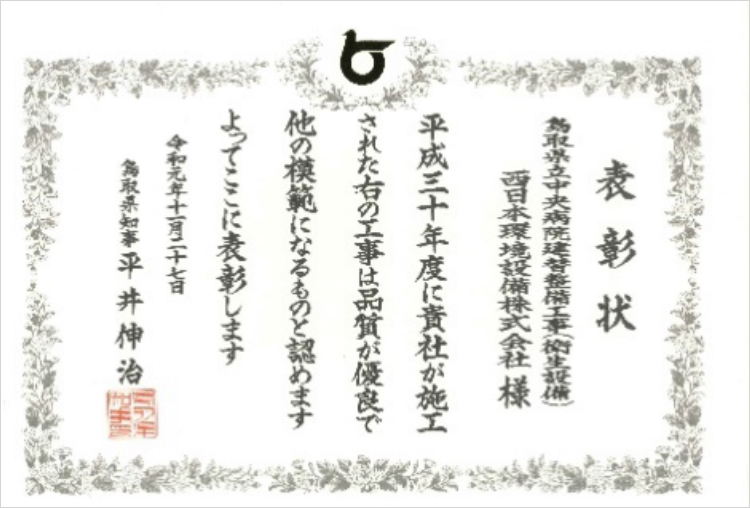 表彰状
鳥取県立中央病院建替整備工事(衛生設備)
西日本環境設備株式会社 様
平成三十年度に貴社が施工
された右の工事は品質が優良で
他の模範になるものと認めます
よってここに表彰します
令和元年十一月二十七日
鳥取県知事 平井伸治